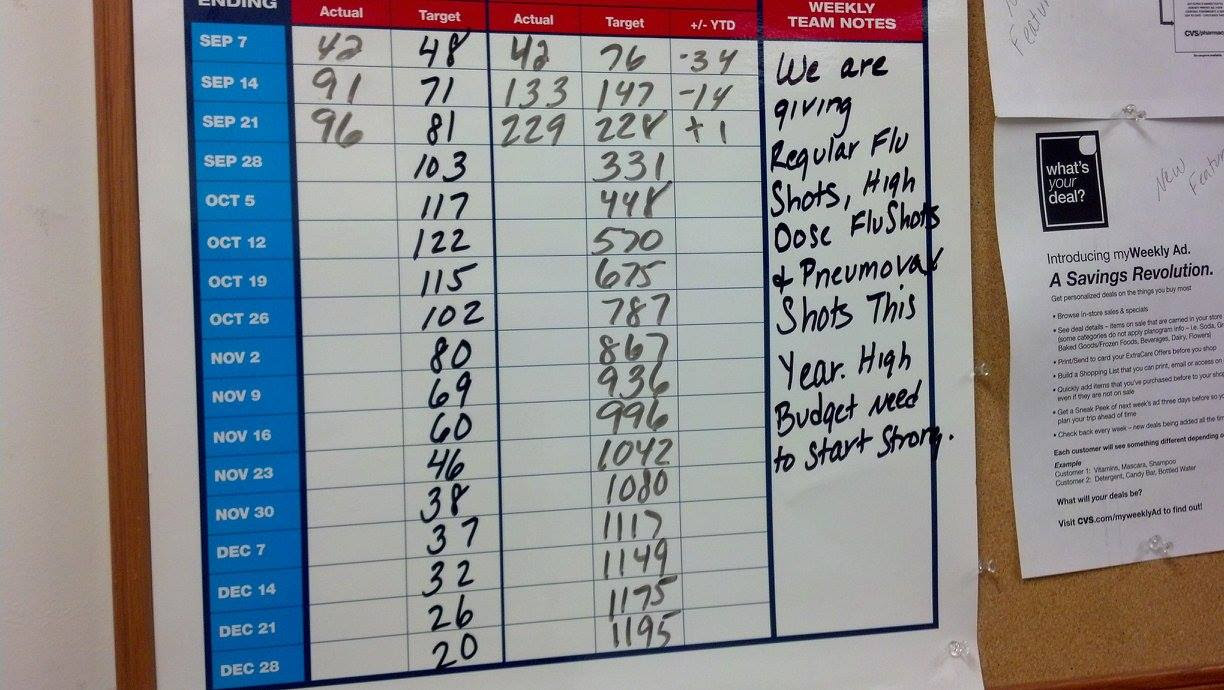 ENDING Actual Target Actual Target +/- YTD WEEKLY TEAM NOTES
SEP 7 42 48 42 76 -34
SEP 14 91 71 133 147 -14
SEP 21 96 81 229 228 +1
SEP 28 103 331
OCT 5 117 448
OCT 12 122 570
OCT 19 115 675
OCT 26 102 787
NOV 2 80 867
NOV 9 69 936
NOV 16 60 996
NOV 23 46 1042
NOV 30 38 1080
DEC 7 37 1117
DEC 14 32 1149
DEC 21 26 1175
DEC 28 20 1195
We are
giving
Regular Flu
Shots, High
Dose Flu Shots
& Pneumovax
Shots This
Year. High
Budget need
to Start Strong.
CVS/pharmac
Featur
what's
your
deal?
New Featur
Introducing myWeekly Ad.
A Savings Revolution.
Get personalized deals on the things you buy most
• Browse in-store sales & specials
• See deal details – items on sale that are carried in your store
(some categories do not apply planogram info – i.e. Soda, Gr
Baked Goods/Frozen Foods, Beverages, Dairy, Flowers)
• Print/Send to card your ExtraCare Offers before you shop
• Build a Shopping List that you can print, email or access on
• Quickly add items that you've purchased before to your shop
even if they are not on sale
• Get a Sneak Peek of next week's ad three days before so yo
plan your trip ahead of time
• Check back every week – new deals being added all the tim
Each customer will see something different depending o
Example
Customer 1: Vitamins, Mascara, Shampoo
Customer 2: Detergent, Candy Bar, Bottled Water
What will your deals be?
Visit CVS.com/myweeklyAd to find out!